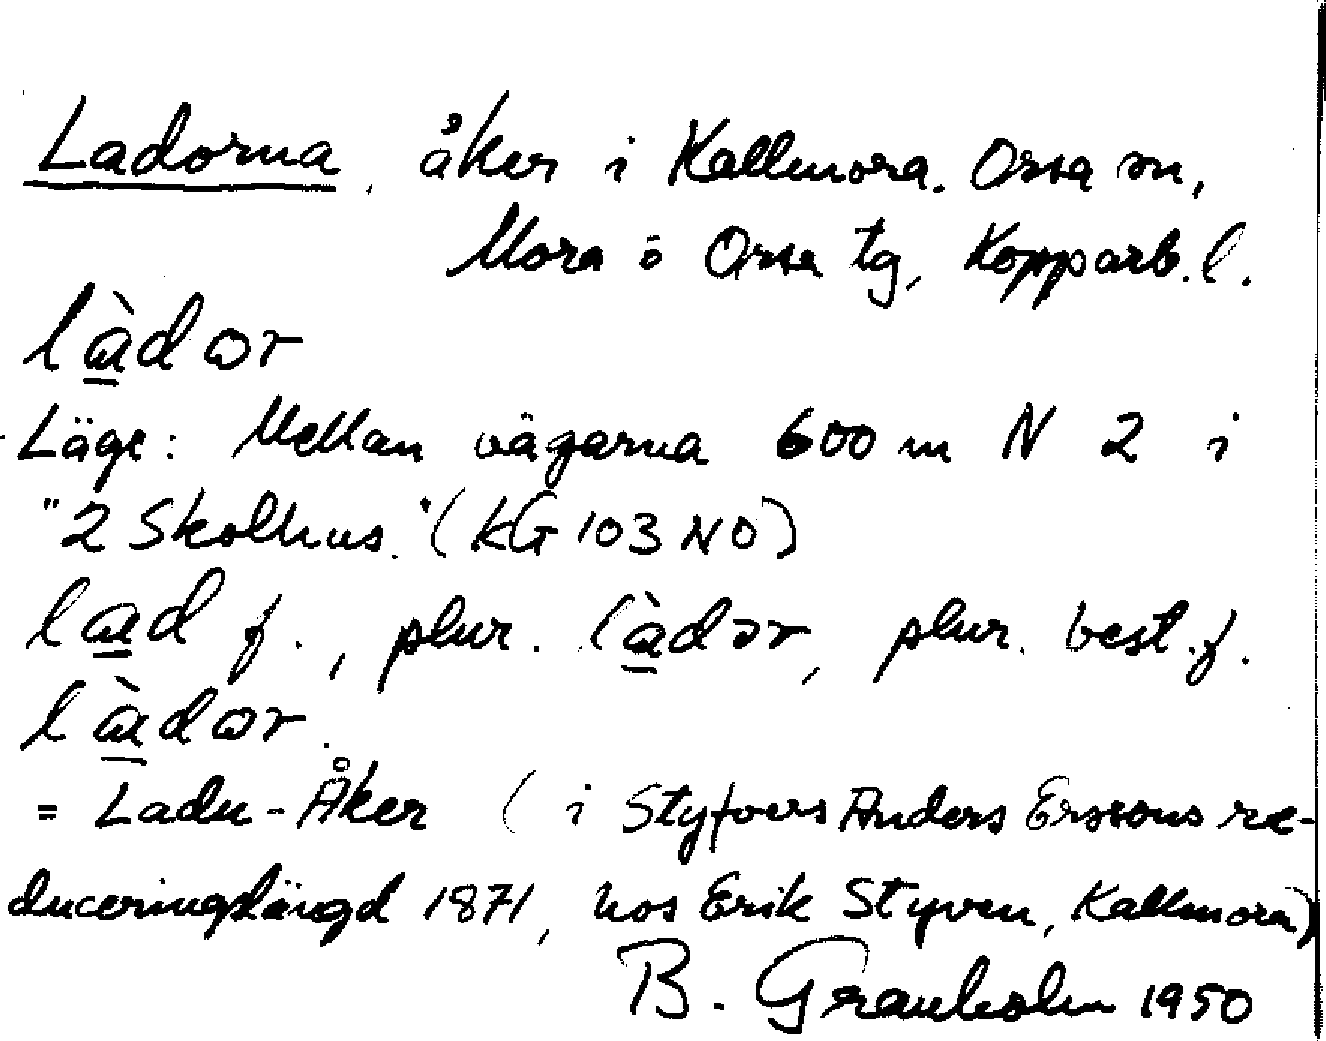 Ladorna, åker i Kallmora. Orsa sn,
Mora o Orsa tg, Kopparb. l.
là̱dor
Läge: Mellan vägarna 600 m N 2 i
"2 Skolhus." (KG 103 NO)
la̱d f., plur. là̱dər, plur. best. f.
là̱dor.
= Ladu-Åker (i Styfvers Anders Erssons re-
duceringslängd 1871, hos Erik Styven, Kallmora)
B. Granholm 1950